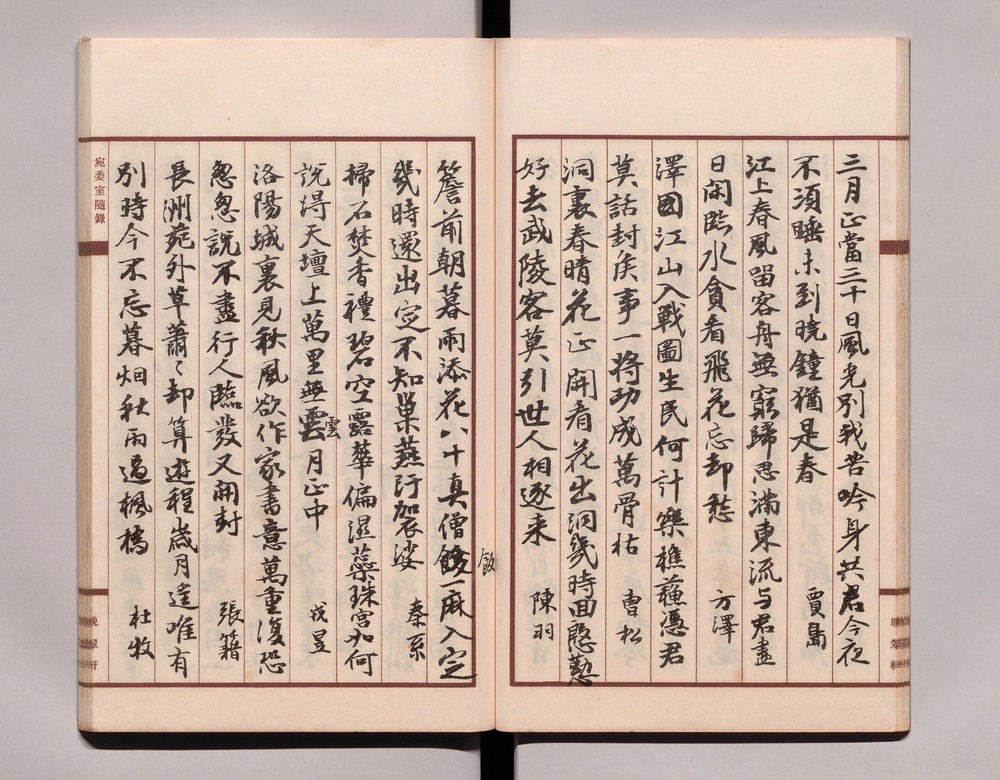 三月正當三十日風光別我苦吟身共君今夜
不須睡未到曉鐘猶是春　賈島
江上春風留客舟無窮歸思滿東流与君盡
日閑臨水貪看飛花忘却愁　方澤
澤國江山入戰圖生民何計樂樵蘓憑君
莫話封侯事一將功成萬骨枯　曹松
洞裏春晴花正開看花出洞幾時回慇懃
好去武陵客莫引世人相逐来　陳羽
簷前朝暮雨添花八十真僧飯一麻入定
飯
幾時還出定不知巢燕汚加衣娑　秦系
掃石焚香禮碧空露華偏濕蘂珠宮如何
說得天壇上萬里無雲月正中　戎昱
雲
洛陽城裏見秋風欲作家書意萬重復恐
怱怱說不盡行人臨發又開封　張籍
長洲苑外草蕭〻却算遊程歲月遙唯有
別時今不忘暮烟秋雨過楓橋　杜牧
宛委室隨錄
晚翠軒